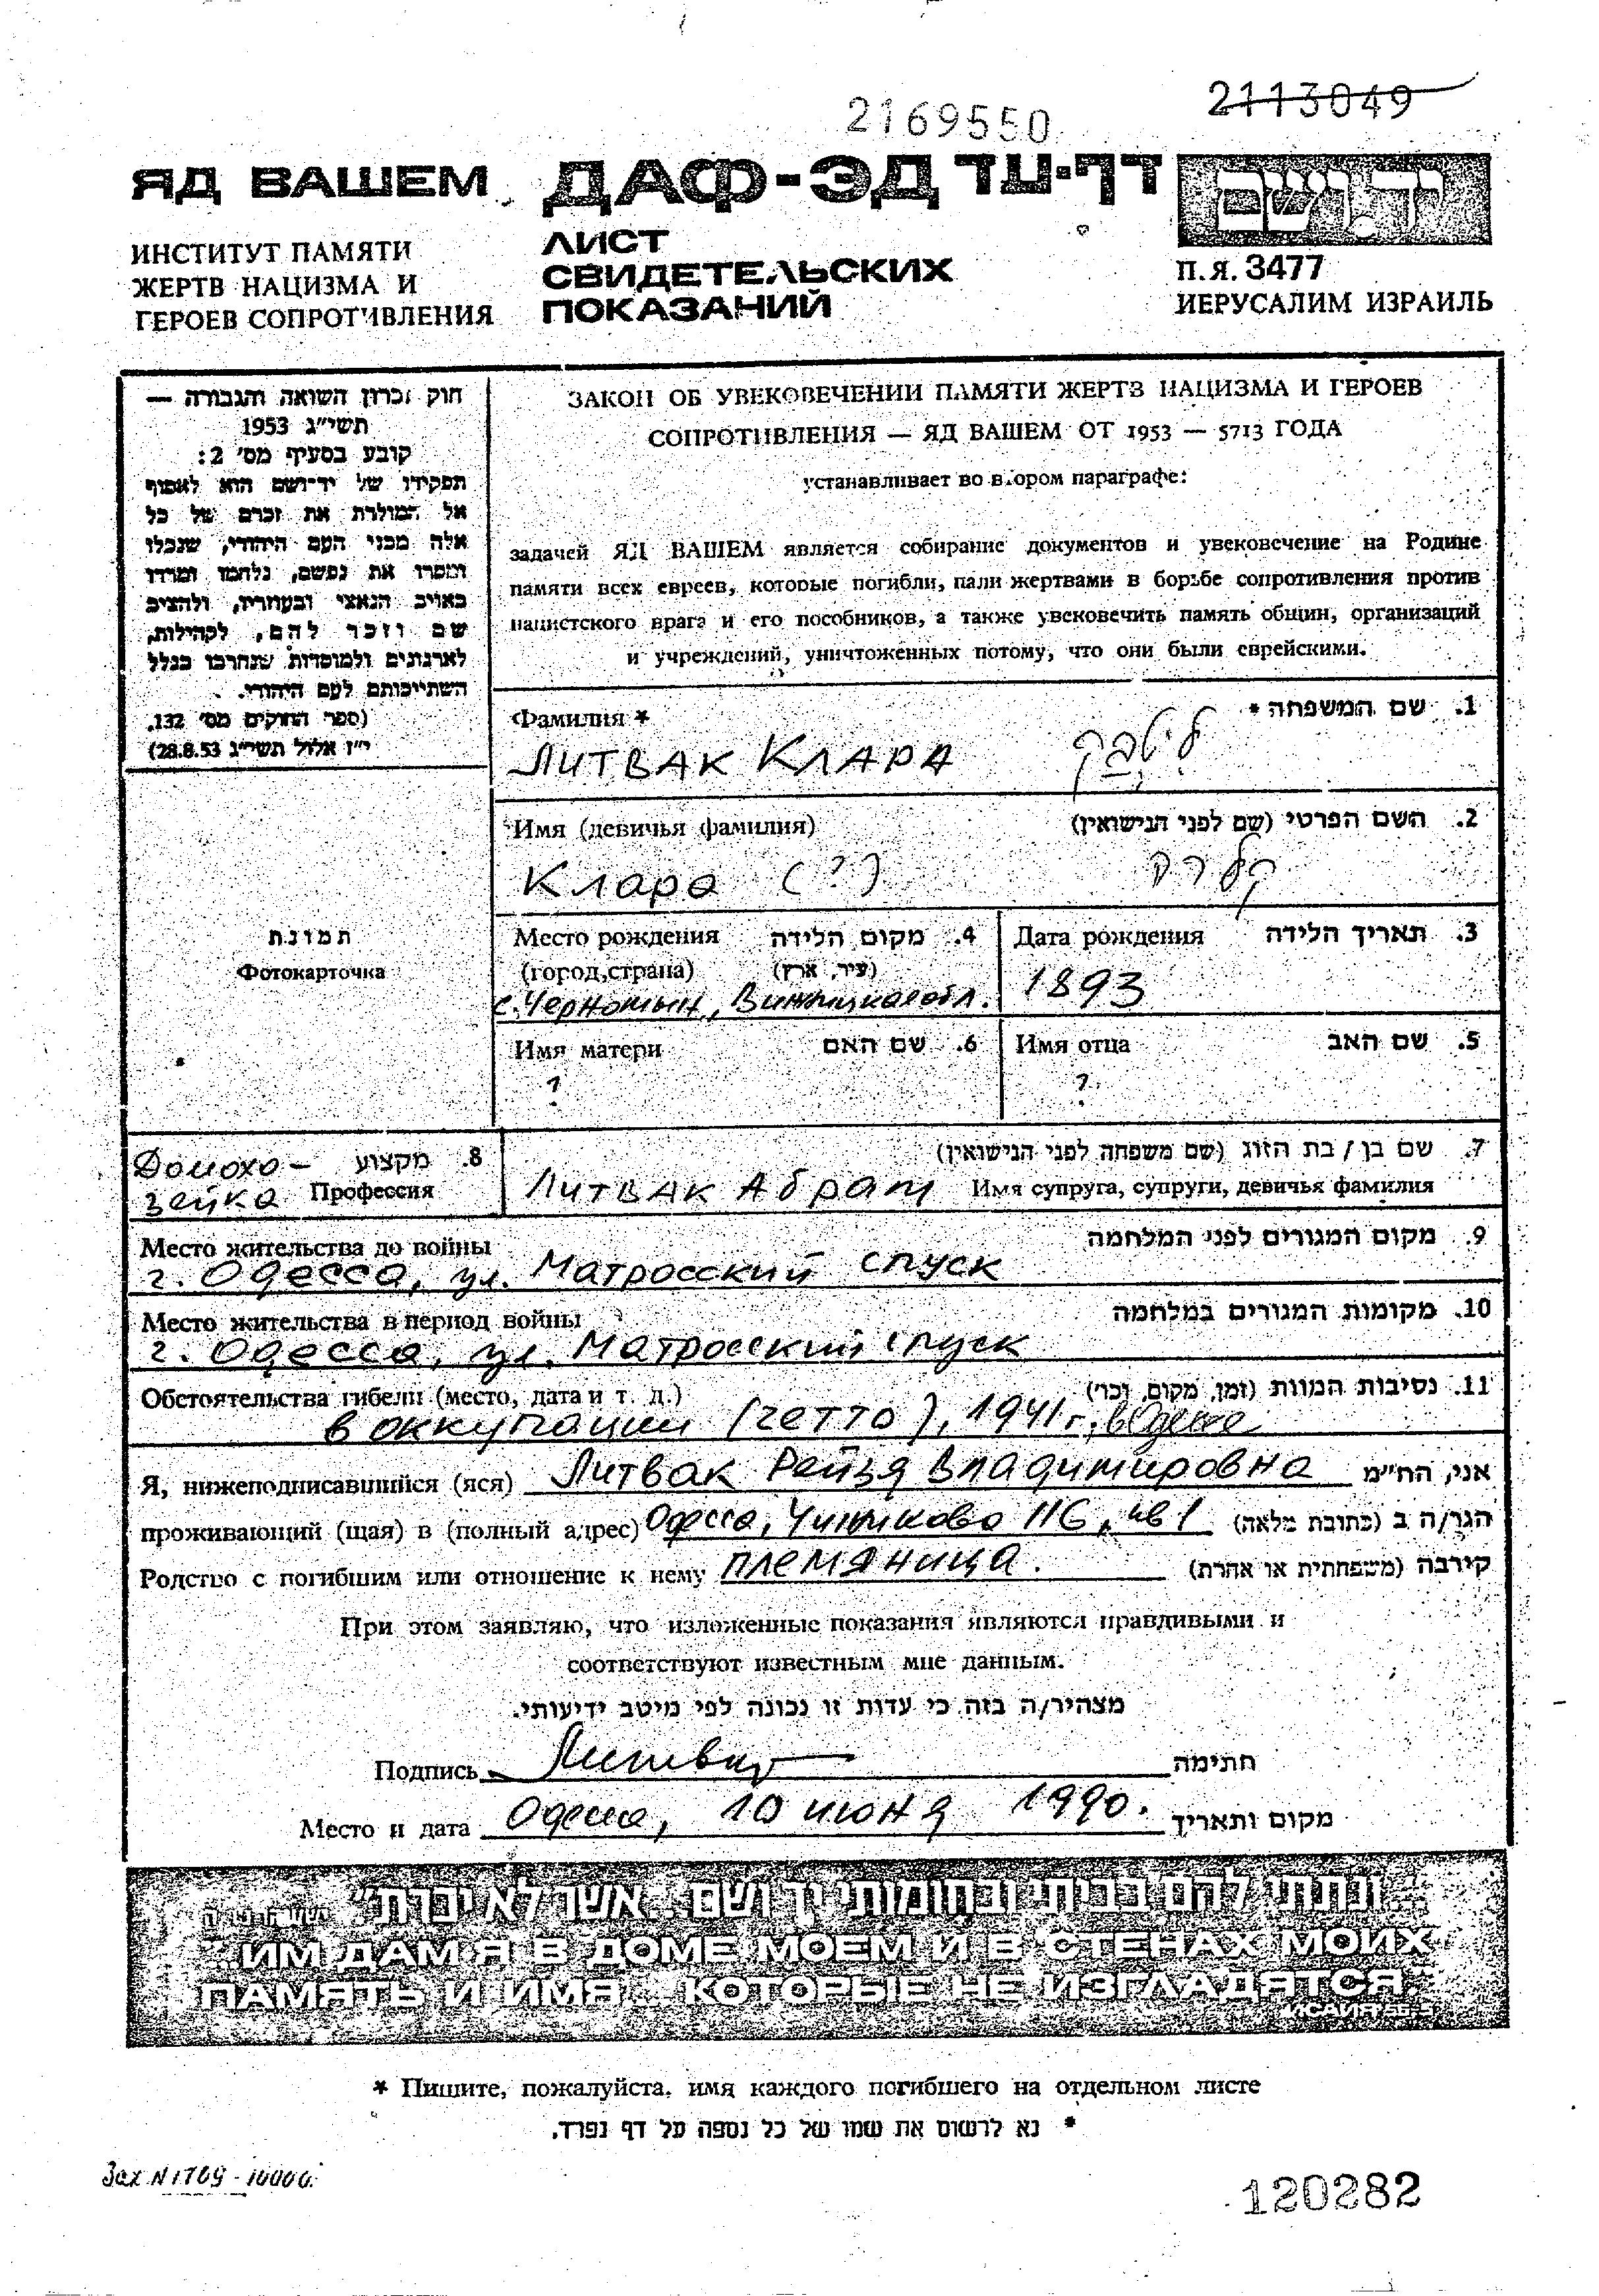 2169550
2113049
ЯД ВАШЕМ
ДАФ-ЭД דף-עד
יד ושם
ИНСТИТУТ ПАМЯТИ
ЖЕРТВ НАЦИЗМА И
ГЕРОЕВ СОПРОТИВЛЕНИЯ
ЛИСТ
СВИДЕТЕЛЬСКИХ
ПОКАЗАНИЙ
П.Я. 3477
ИЕРУСАЛИМ ИЗРАИЛЬ
חוק זכרון השואה והגבורה —
תשי״ג 1953
קובע בסעיף מס׳ 2:
תפקידו של יד־ושם הוא לאסוף
אל המולדת את זכרם של כל
אלה מבני העם היהודי, שנפלו
ומסרו את נפשם, נלחמו ומרדו
באויב הנאצי ובעוזריו, ולהציב
שם וזכר להם, לקהילות,
לארגונים ולמוסדות שנחרבו בגלל
השתייכותם לעם היהודי.
(ספר החוקים מס׳ 132,
י״ז אלול תשי״ג 28.8.53)
ЗАКОН ОБ УВЕКОВЕЧЕНИИ ПАМЯТИ ЖЕРТВ НАЦИЗМА И ГЕРОЕВ
СОПРОТИВЛЕНИЯ — ЯД ВАШЕМ ОТ 1953 — 5713 ГОДА
устанавливает во втором параграфе:
задачей ЯД ВАШЕМ является собирание документов и увековечение на Родине
памяти всех евреев, которые погибли, пали жертвами в борьбе сопротивления против
нацистского врага и его пособников, а также увековечить память общин, организаций
и учреждений, уничтоженных потому, что они были еврейскими.
Фамилия *
1. שם המשפחה *
ЛИТВАК КЛАРА ליטבק
Имя (девичья фамилия)
2. השם הפרטי (שם לפני הנישואין)
Клара (?) קלרה
תמונת
Фотокарточка
Место рождения 4. מקום הלידה
(город, страна) (עיר, ארץ)
с. Черномын, Винницкая обл.
Дата рождения 3. תאריך הלידה
1893
Имя матери 6. שם האם
?
Имя отца 5. שם האב
?
Домохо- 8. מקצוע
зяйка Профессия
7. שם בן / בת הזוג (שם משפחה לפני הנישואין)
Литвак Абрам Имя супруга, супруги, девичья фамилия
Место жительства до войны 9. מקום המגורים לפני המלחמה
г. Одесса, ул. Матросский спуск
Место жительства в период войны 10. מקומות המגורים במלחמה
г. Одесса, ул. Матросский спуск
Обстоятельства гибели (место, дата и т. д.) 11. נסיבות המוות (זמן, מקום, וכו׳)
в оккупации (гетто), 1941 г., в Одессе
Я, нижеподписавшийся (яся) Литвак Рейзя Владимировна אני, הח״מ
проживающий (щая) в (полный адрес) Одесса, 116, кв 1 הגר/ה ב (כתובת מלאה)
Родство с погибшим или отношение к нему племяница. קירבה (משפחתית או אחרת)
При этом заявляю, что изложенные показания являются правдивыми и
соответствуют известным мне данным.
מצהיר/ה בזה כי עדות זו נכונה לפי מיטב ידיעותי.
Подпись Литвак חתימה
Место и дата Одесса, 10 июня 1990. מקום ותאריך
״...ונתתי להם בביתי ובחומותי יד ושם... אשר לא יכרת״
"...ИМ ДАМ Я В ДОМЕ МОЕМ И В СТЕНАХ МОИХ
ПАМЯТЬ И ИМЯ... КОТОРЫЕ НЕ ИЗГЛАДЯТСЯ."
ИСАЙЯ 56-5
* Пишите, пожалуйста, имя каждого погибшего на отдельном листе
* נא לרשום את שמו של כל נספה על דף נפרד.
Зак N 1709 - 10000
120282